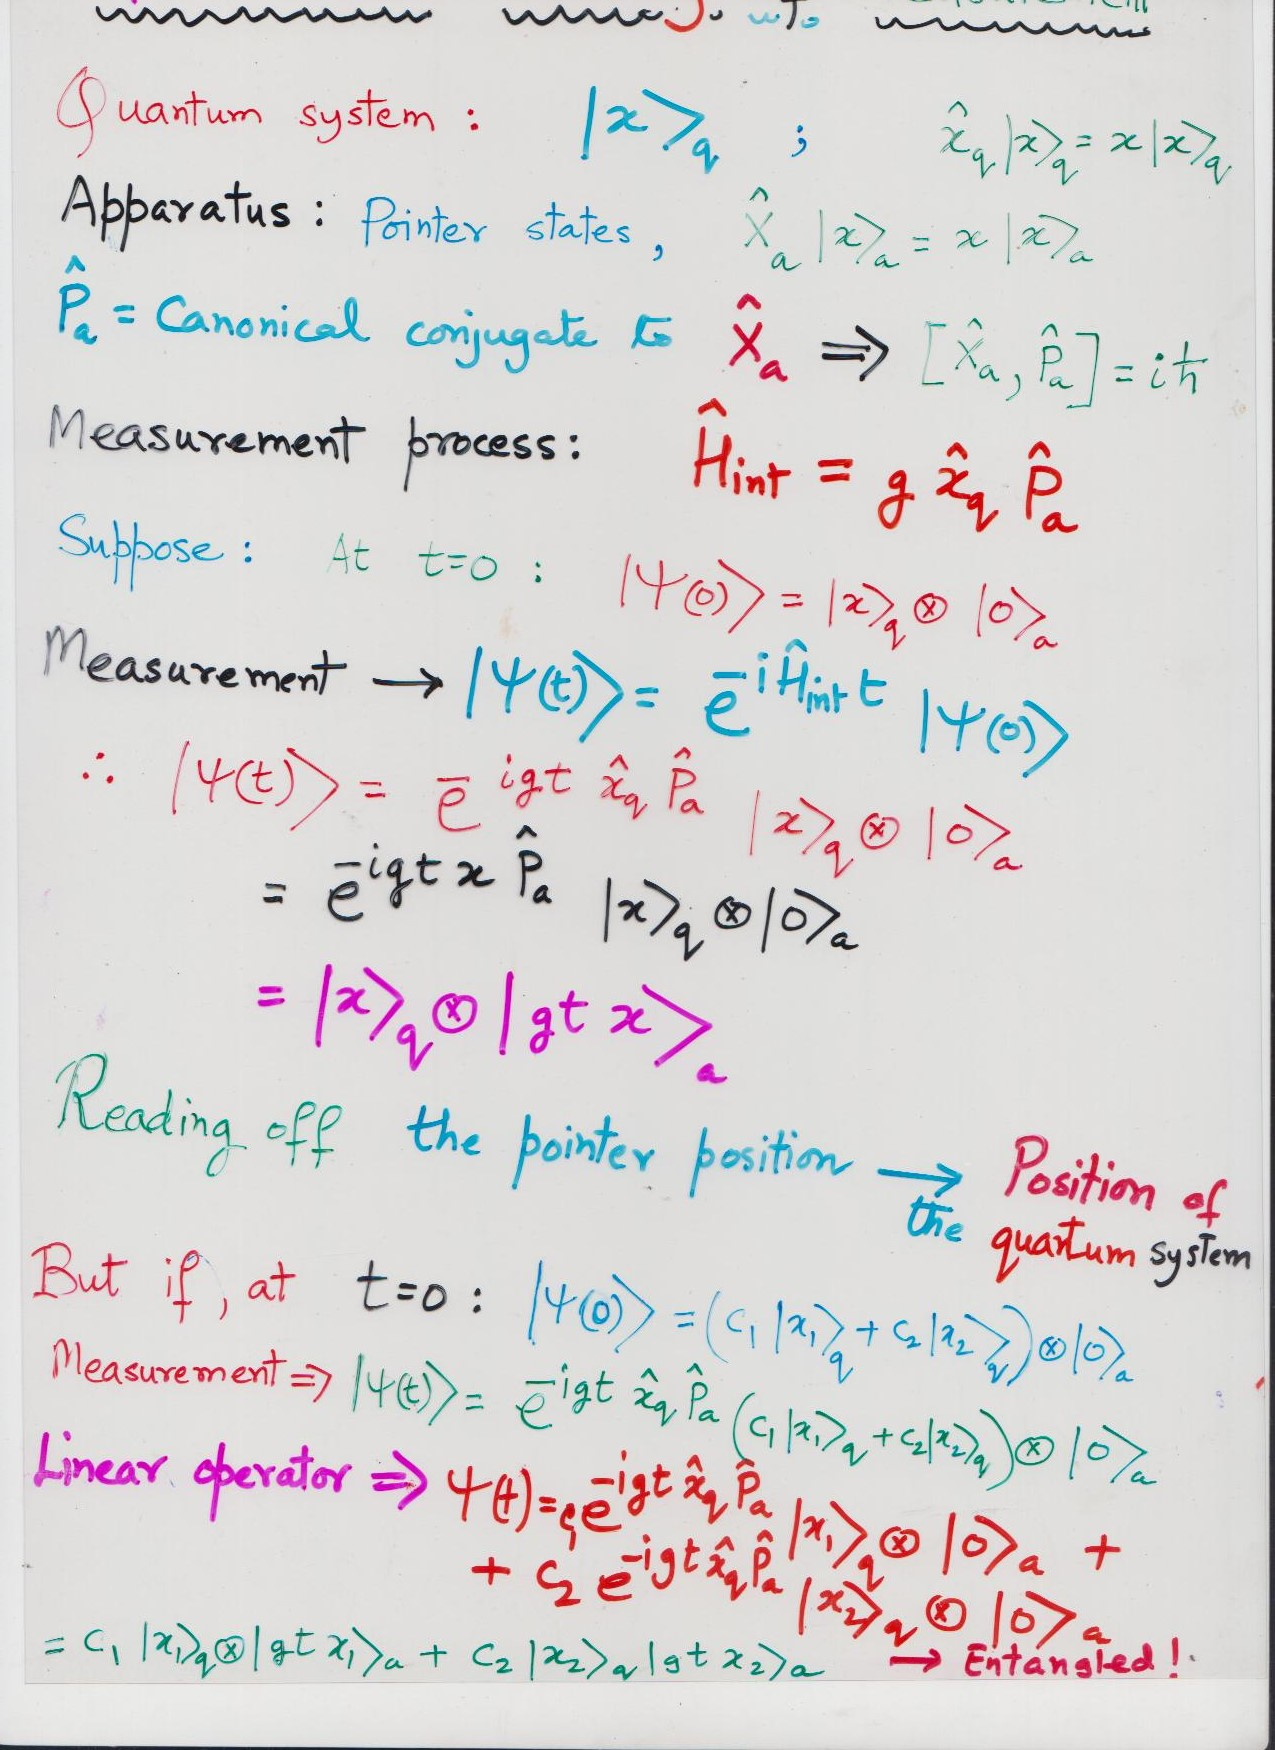 Quantum system : |x⟩_q ; x̂_q |x⟩_q = x |x⟩_q
Apparatus : Pointer states, X̂_a |x⟩_a = x |x⟩_a
P̂_a = Canonical conjugate to X̂_a ⇒ [X̂_a, P̂_a] = iħ
Measurement process : Ĥ_int = g x̂_q P̂_a
Suppose : At t=0 : |Ψ(0)⟩ = |x⟩_q ⊗ |0⟩_a
Measurement → |Ψ(t)⟩ = e^{-iĤ_int t} |Ψ(0)⟩
∴ |Ψ(t)⟩ = e^{-igt x̂_q P̂_a} |x⟩_q ⊗ |0⟩_a
= e^{-igt x P̂_a} |x⟩_q ⊗ |0⟩_a
= |x⟩_q ⊗ |gt x⟩_a
Reading off the pointer position → Position of
the quantum system
But if, at t=0 : |Ψ(0)⟩ = (c₁ |x₁⟩_q + c₂ |x₂⟩_q) ⊗ |0⟩_a
Measurement ⇒ |Ψ(t)⟩ = e^{-igt x̂_q P̂_a} (c₁ |x₁⟩_q + c₂ |x₂⟩_q) ⊗ |0⟩_a
Linear operator ⇒ Ψ(t) = c₁ e^{-igt x̂_q P̂_a} |x₁⟩_q ⊗ |0⟩_a +
+ c₂ e^{-igt x̂_q P̂_a} |x₂⟩_q ⊗ |0⟩_a
= c₁ |x₁⟩_q ⊗ |gt x₁⟩_a + c₂ |x₂⟩_q |gt x₂⟩_a → Entangled !